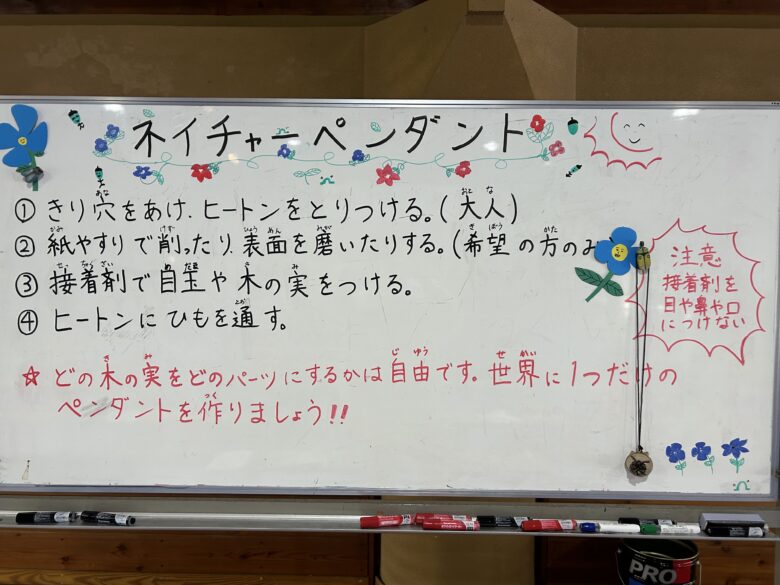 ネイチャーペンダント
① きり穴をあけ、ヒートンをとりつける。(大人)
② 紙やすりで削ったり、表面を磨いたりする。(希望の方のみ
③ 接着剤で目玉や木の実をつける。
④ ヒートンにひもを通す。
☆ どの木の実をどのパーツにするかは自由です。世界に1つだけの
ペンダントを作りましょう!!
注意
接着剤を
目や鼻や口
につけない
PRO